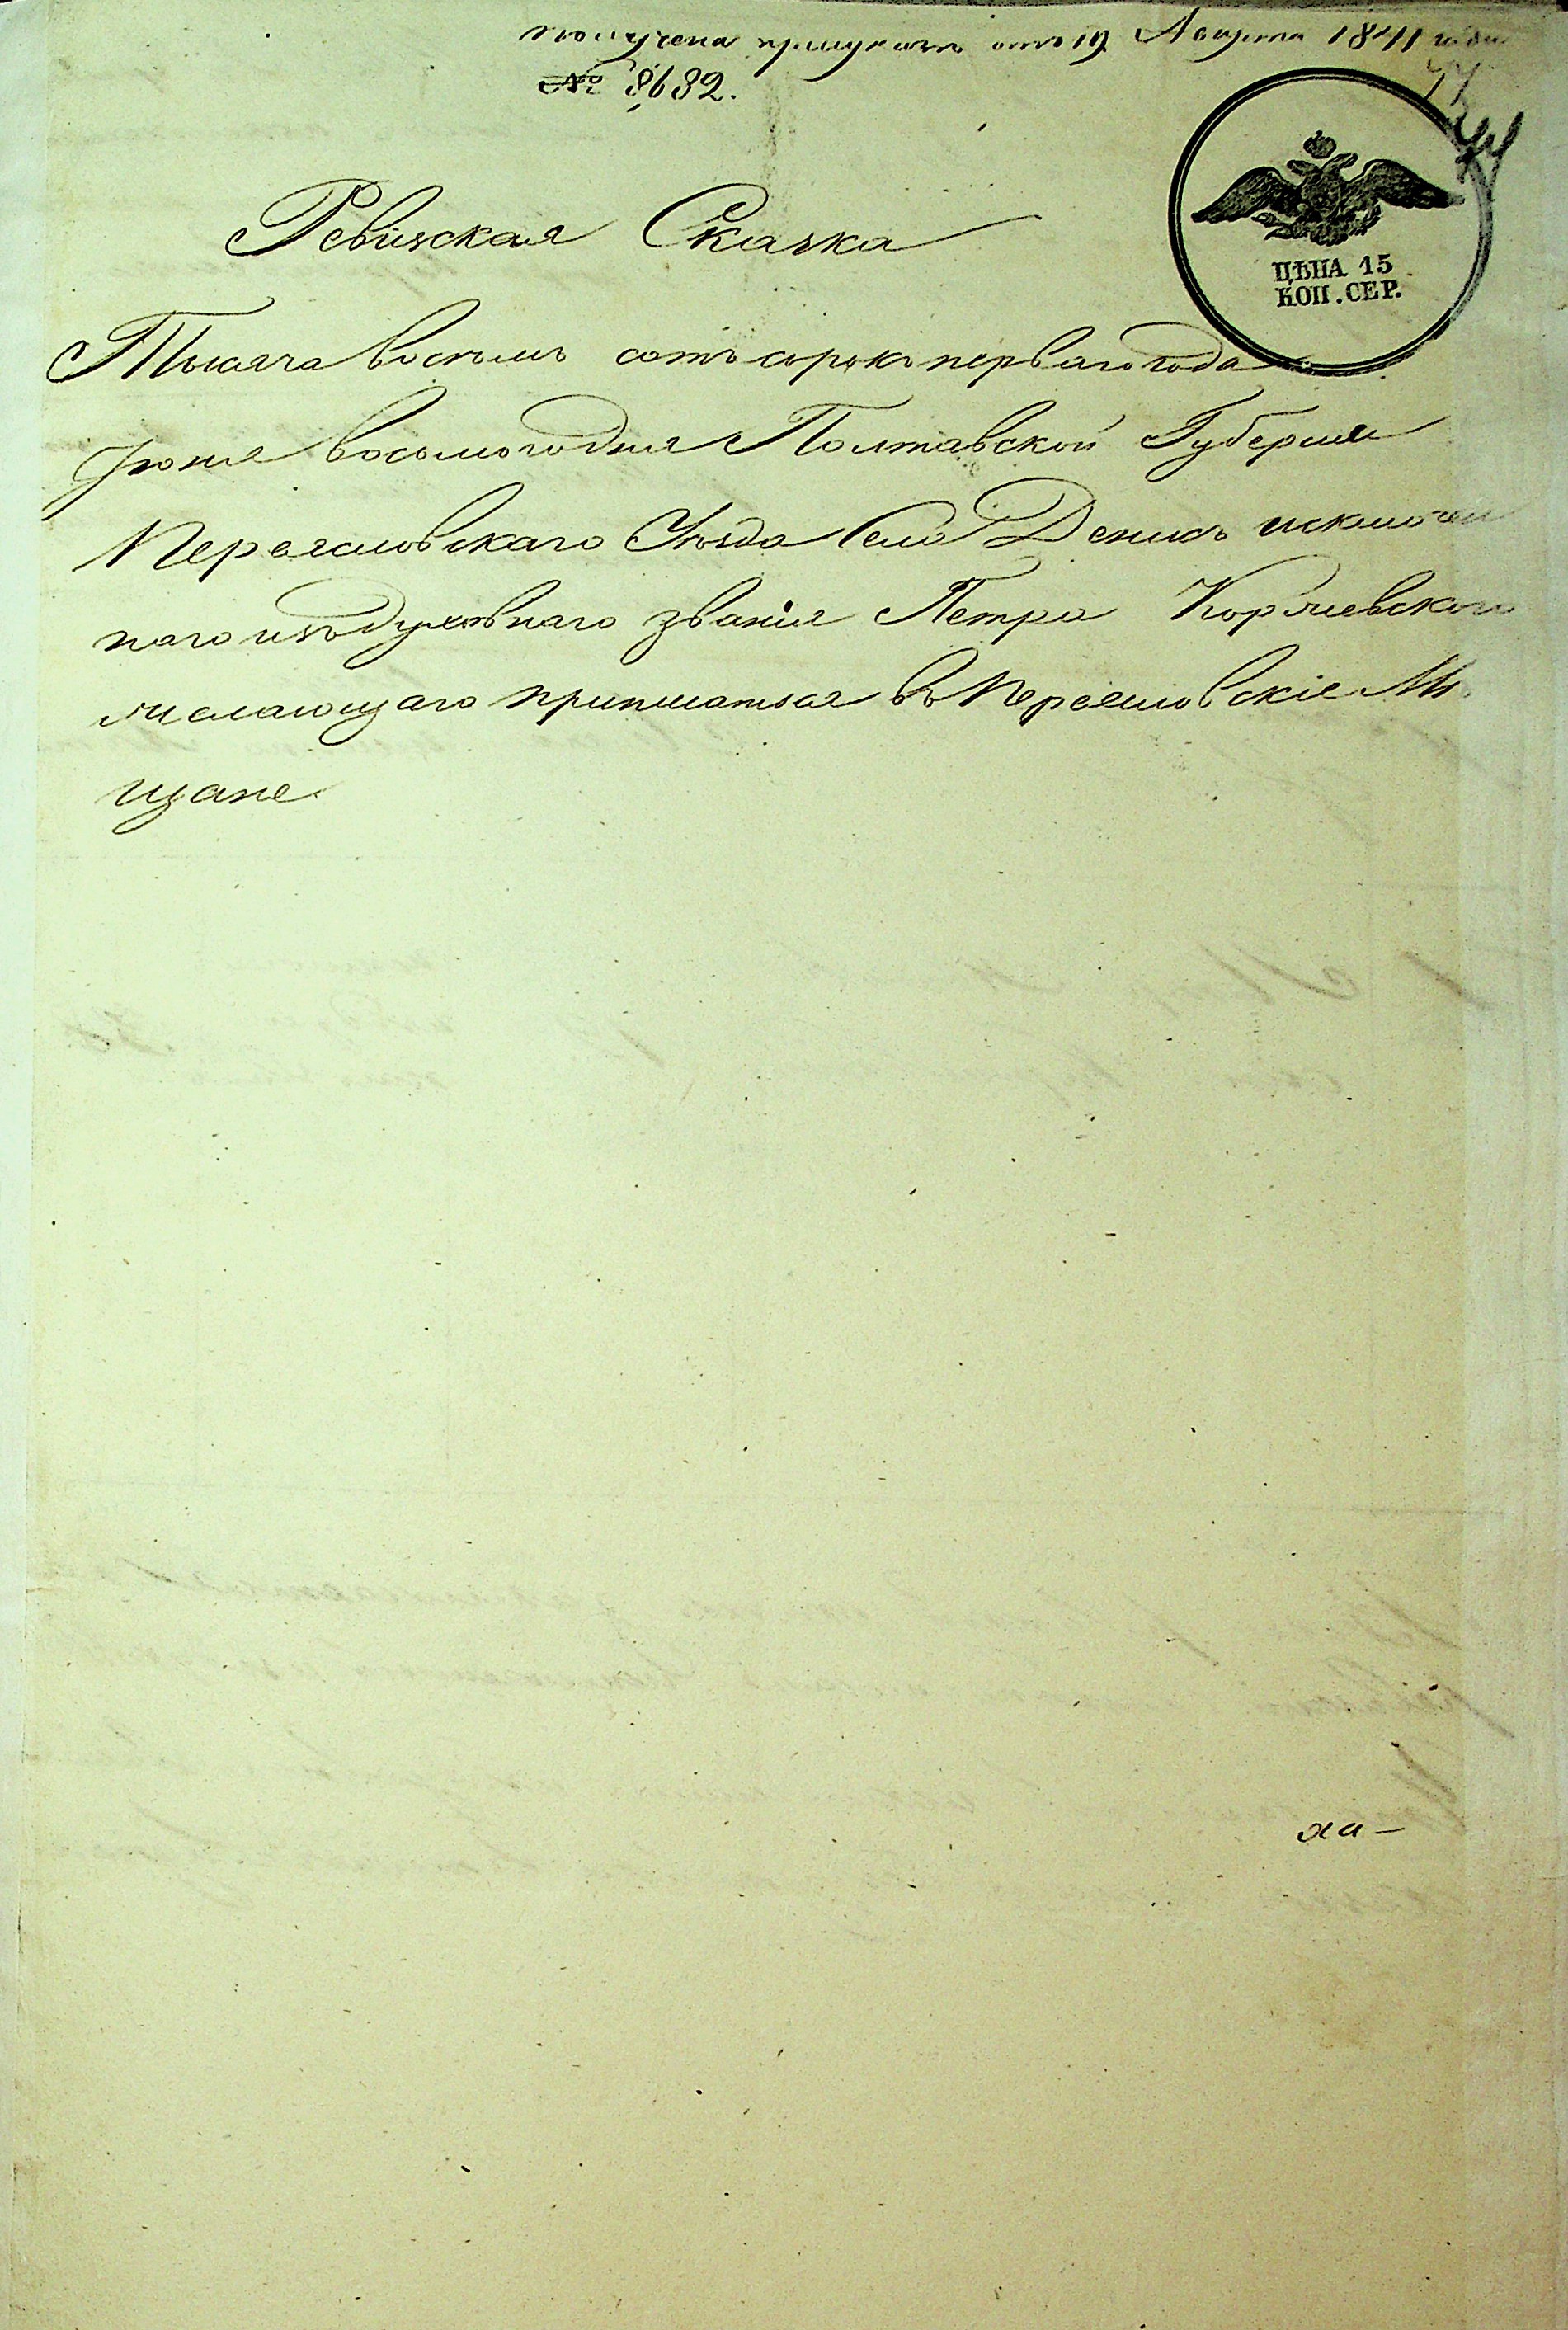 получена при указе отъ 19 Августа 1841 года
№ 8632.
ЦѢНА 15
КОП. СЕР.
Ревизская Сказка
Тысяча восемь сотъ сорокъ перваго года
Іюня восьмого дня Полтавской Губерніи
Переяславскаго Уѣзда Села Денисъ исключен
наго изъ духовнаго званія Петра Коржевскаго
желающаго приписатьса въ Переяславскіе Мѣ
щане